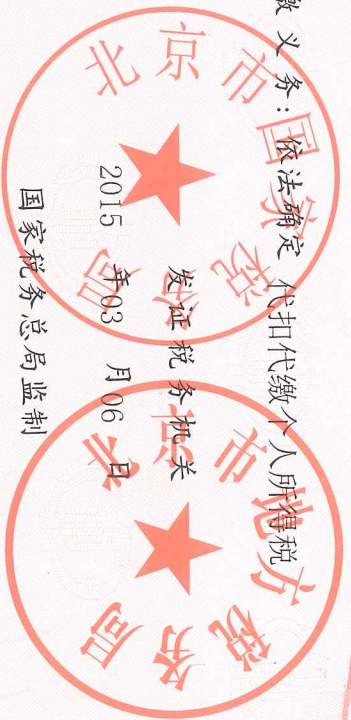 缴义务：依法确定 代扣代缴个人所得税
发证税务机关
2015 年 03 月 06 日
国家税务总局监制
北京市国家税务局
北京市地方税务局